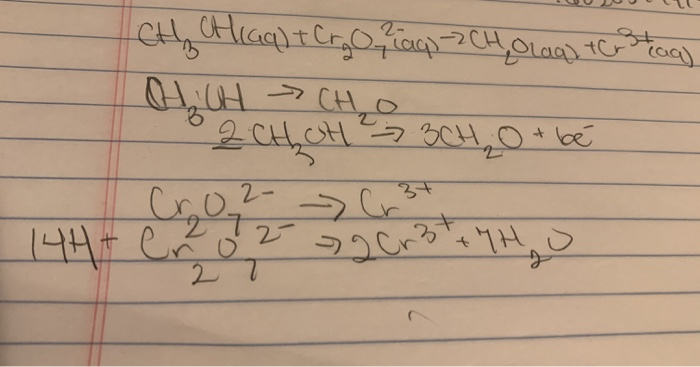 CH3OH(aq) + Cr2O7^2-(aq) → CH2O(aq) + Cr^3+(aq)
CH3OH → CH2O
2CH3OH → 3CH2O + 6e^-
Cr2O7^2- → Cr^3+
14H + Cr2O7^2- → 2Cr^3+ + 7H2O